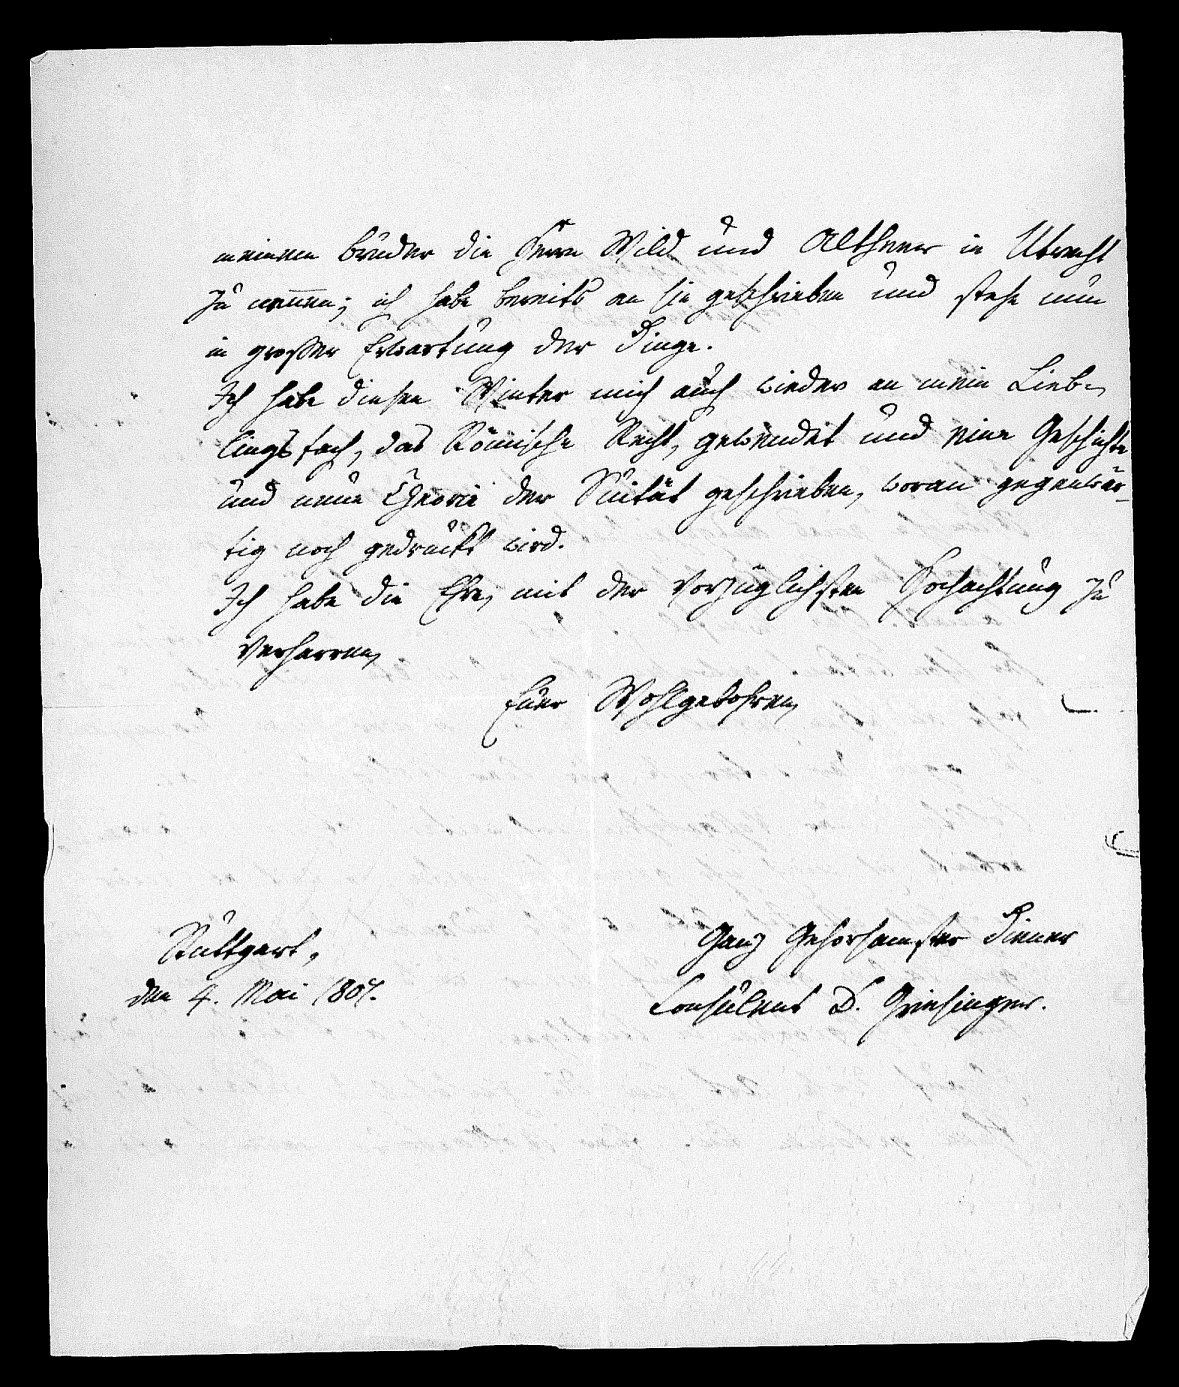 meinem Bruder die Herrn Wild und Altheer in Utrecht
zu nennen; ich habe bereits an sie geschrieben und stehe nun
in großer Erwartung der Dinge.
Ich habe diesen Winter mich auch wieder an mein Lieb-
lingsfach, das Römische Recht, gewendet und eine Geschichte
und neue Theorie der Suität geschrieben, woran gegenwär-
tig noch gedruckt wird.
Ich habe die Ehre, mit der vorzüglichsten Hochachtung zu
verharren,
Euer Wohlgebohren,
Stuttgart,
den 4. Mai 1807.
Ganz Gehorsamster Diener
Consulent D. Griesinger.